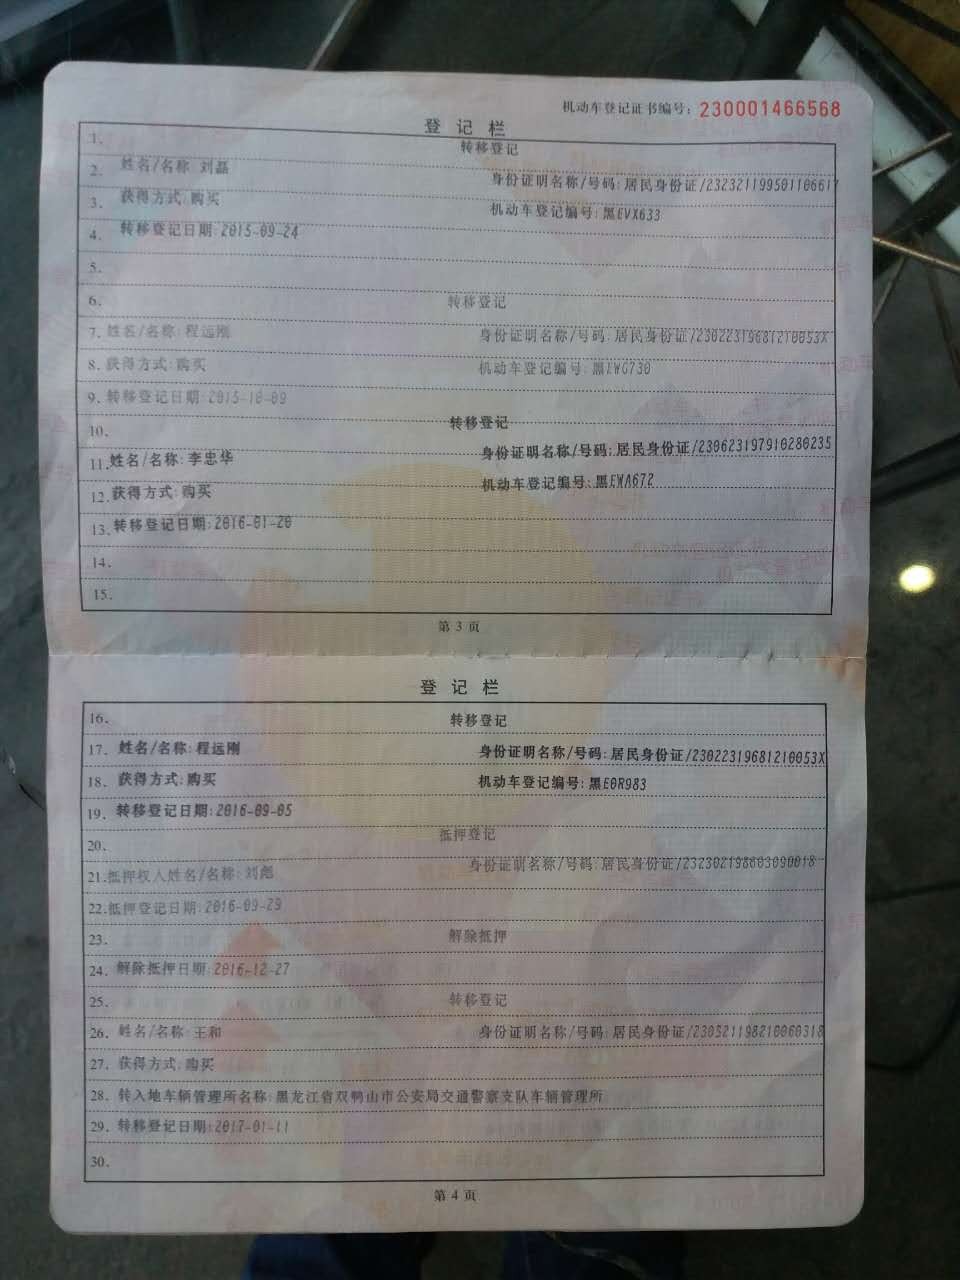 机动车登记证书编号：230001466568
登 记 栏
1. 转移登记
2. 姓名/名称:刘磊 身份证明名称/号码:居民身份证/232321199501106617
3. 获得方式:购买 机动车登记编号:黑EVX633
4. 转移登记日期:2015-09-24
5.
6. 转移登记
7. 姓名/名称:程远刚 身份证明名称/号码:居民身份证/23022319681210053X
8. 获得方式:购买 机动车登记编号:黑EWG730
9. 转移登记日期:2015-10-09
10. 转移登记
11. 姓名/名称:李忠华 身份证明名称/号码:居民身份证/230623197910280235
12. 获得方式:购买 机动车登记编号:黑EWA672
13. 转移登记日期:2016-01-20
14.
15.
第 3 页
登 记 栏
16. 转移登记
17. 姓名/名称:程远刚 身份证明名称/号码:居民身份证/23022319681210053X
18. 获得方式:购买 机动车登记编号:黑E0R983
19. 转移登记日期:2016-09-05
20. 抵押登记
21. 抵押权人姓名/名称:刘彪 身份证明名称/号码:居民身份证/232302198603090018
22. 抵押登记日期:2016-09-29
23. 解除抵押
24. 解除抵押日期:2016-12-27
25. 转移登记
26. 姓名/名称:王和 身份证明名称/号码:居民身份证/230521198210060318
27. 获得方式:购买
28. 转入地车辆管理所名称:黑龙江省双鸭山市公安局交通警察支队车辆管理所
29. 转移登记日期:2017-01-11
30.
第 4 页